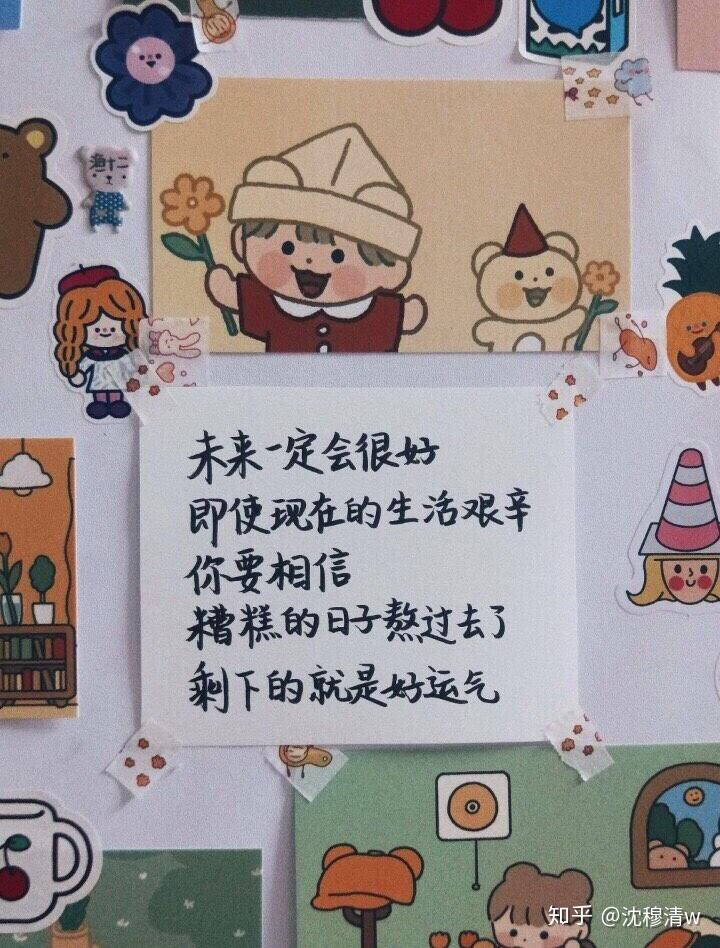 未来一定会很好
即使现在的生活艰辛
你要相信
糟糕的日子熬过去了
剩下的就是好运气
知乎 @沈穆清w